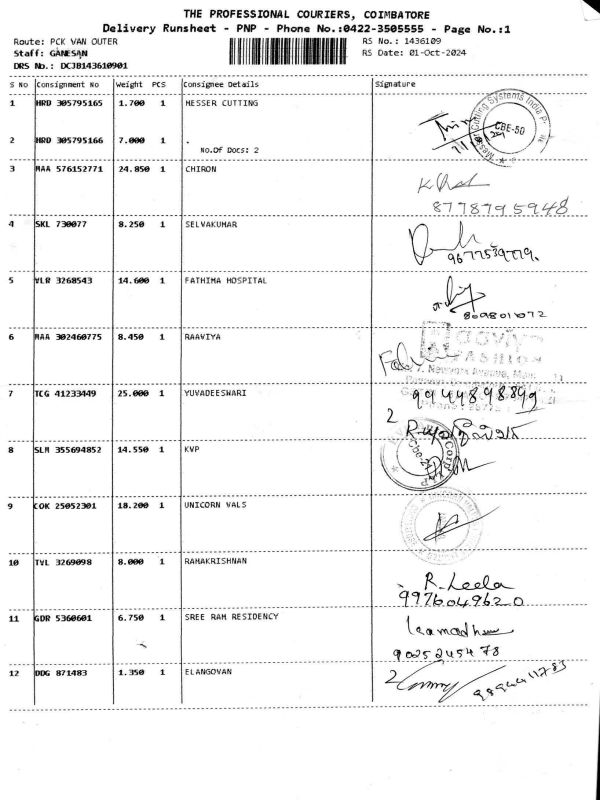 THE PROFESSIONAL COURIERS, COIMBATORE
Delivery Runsheet - PNP - Phone No.:0422-3505555 - Page No.:1
Route: PCK VAN OUTER RS No.: 1436109
Staff: GANESAN RS Date: 01-Oct-2024
DRS No.: DCJB143610901
S No Consignment No Weight PCS Consignee Details Signature
1 HRD 305795165 1.700 1 MESSER CUTTING
Messer Cutting Systems India P
CBE-50
2 HRD 305795166 7.000 1 .
No.Of Docs: 2
3 MAA 576152771 24.850 1 CHIRON
8778795948
4 SKL 730077 8.250 1 SELVAKUMAR
5 VLR 3268543 14.600 1 FATHIMA HOSPITAL
8098011072
6 MAA 302460775 8.450 1 RAAVIYA
FASHION
7 TCG 41233449 25.000 1 YUVADEESWARI
9944898849
2
8 SLM 355694852 14.550 1 KVP
9 COK 25052301 18.200 1 UNICORN VALS
10 TVL 3269098 8.000 1 RAMAKRISHNAN
R. Leela
9976049620
11 GDR 5360601 6.750 1 SREE RAM RESIDENCY
9025245478
12 DDG 871483 1.350 1 ELANGOVAN
2
9894411783